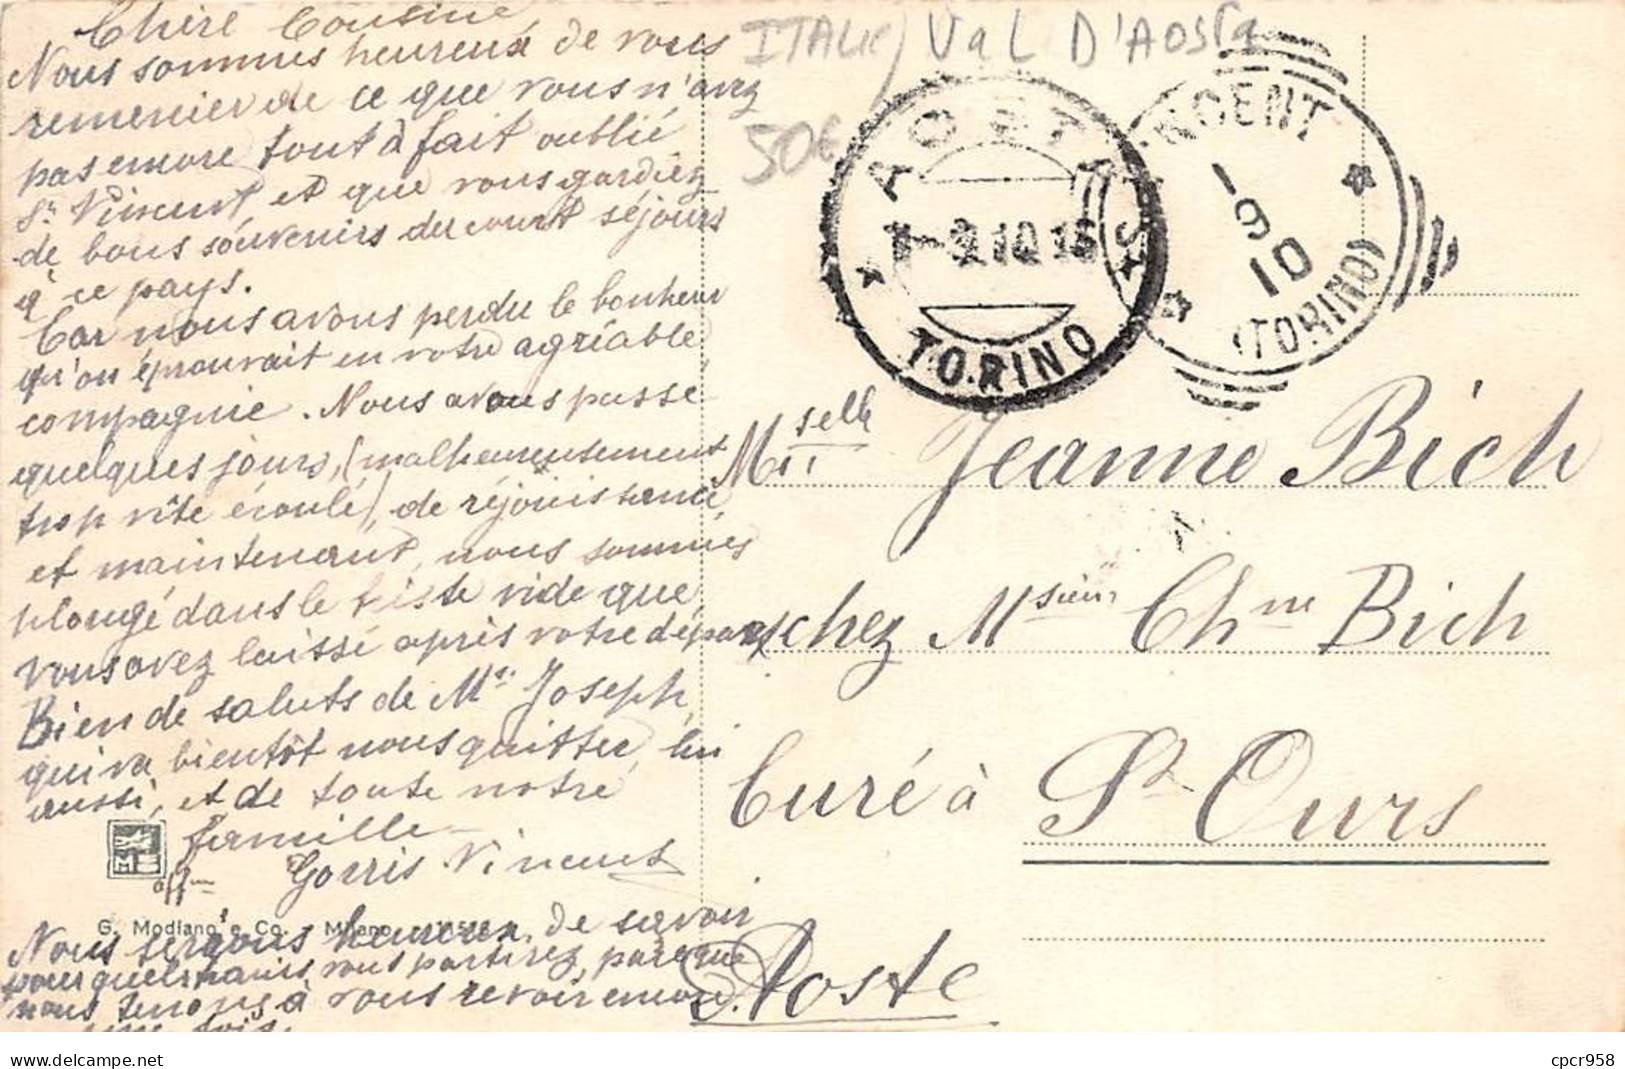 Chère Cousine
Nous sommes heureux de vous
remercier de ce que vous n'avez
pas encore tout à fait oublié
St Vincent, et que vous gardiez
de bons souvenirs du court séjours
à ce pays.
Car nous avons perdu le bonheur
qu'on éprouvait en votre agréable
compagnie. Nous avous passé
quelques jours, (malheureusement
trop vite écoulé), de réjouissance
et maintenant, nous sommes
plongé dans le triste vide que
vous avez laissé après votre départ
Bien de saluts de Mr. Joseph,
qui va bientôt nous quitter, lui
aussi, et de toute notre
famille
affme Gorris Vincent
G. Modiano e Co. - Milano
Nous serons heureux, de savoir
pour quelr mains vous partirez, parceque
nous tenons à vous revoir encore
une fois.
ITALIE / Val D'AOSta
50€
AOSTA
2.10.15
TORINO
ST VINCENT
1-9
10
(TORINO)
Mselle Jeanne Bich
chez Msieur Chne Bich
Curé à St Ours
Aoste
cpcr958